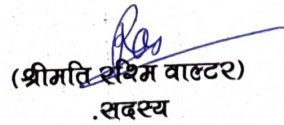 (श्रीमति रश्मि वाल्टर)
.सदस्य